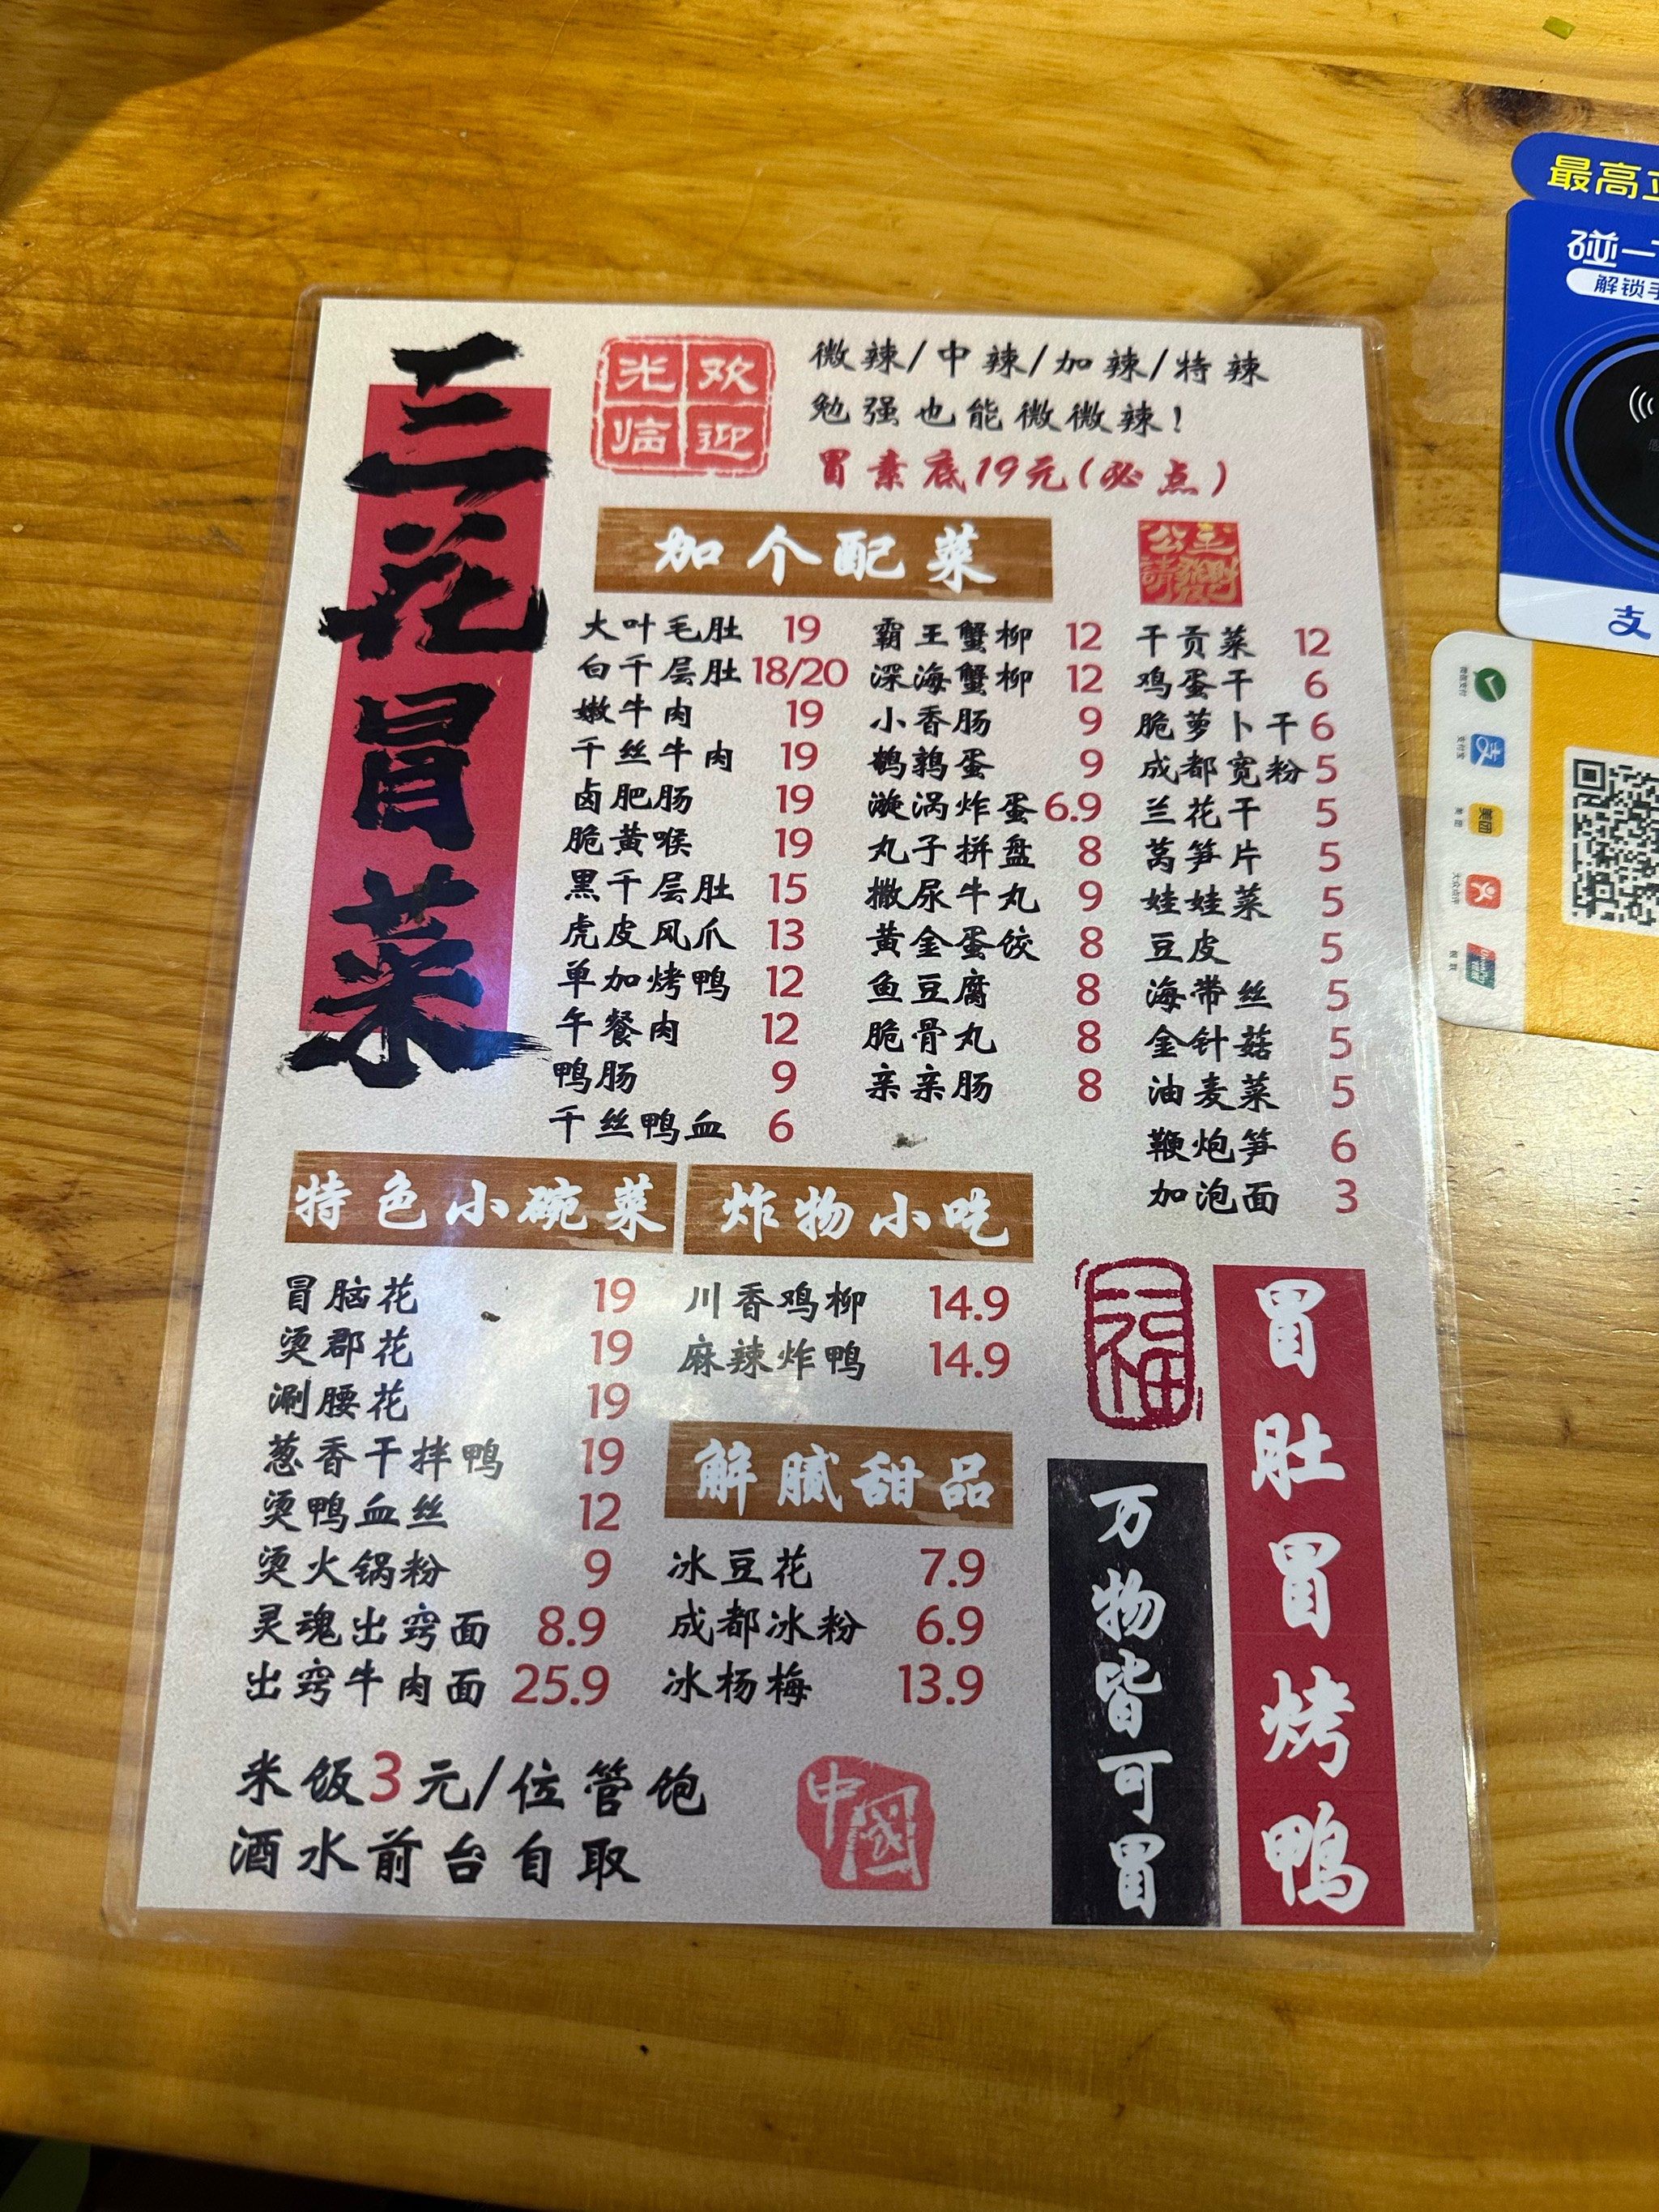 三花冒菜
欢迎
光临
微辣/中辣/加辣/特辣
勉强也能微微辣！
冒素底19元(必点)
加个配菜
公主
請發財
大叶毛肚 19
白千层肚 18/20
嫩牛肉 19
千丝牛肉 19
卤肥肠 19
脆黄喉 19
黑千层肚 15
虎皮凤爪 13
单加烤鸭 12
午餐肉 12
鸭肠 9
千丝鸭血 6
霸王蟹柳 12
深海蟹柳 12
小香肠 9
鹌鹑蛋 9
漩涡炸蛋 6.9
丸子拼盘 8
撒尿牛丸 9
黄金蛋饺 8
鱼豆腐 8
脆骨丸 8
亲亲肠 8
干贡菜 12
鸡蛋干 6
脆萝卜干 6
成都宽粉 5
兰花干 5
莴笋片 5
娃娃菜 5
豆皮 5
海带丝 5
金针菇 5
油麦菜 5
鞭炮笋 6
加泡面 3
特色小碗菜
冒脑花 19
烫郡花 19
涮腰花 19
葱香干拌鸭 19
烫鸭血丝 12
烫火锅粉 9
灵魂出窍面 8.9
出窍牛肉面 25.9
炸物小吃
川香鸡柳 14.9
麻辣炸鸭 14.9
解腻甜品
冰豆花 7.9
成都冰粉 6.9
冰杨梅 13.9
米饭3元/位管饱
酒水前台自取
中國
福
万物皆可冒
冒肚冒烤鸭
最高立
碰一
解锁
支
微信支付
支付宝
美团
大众点评
银联